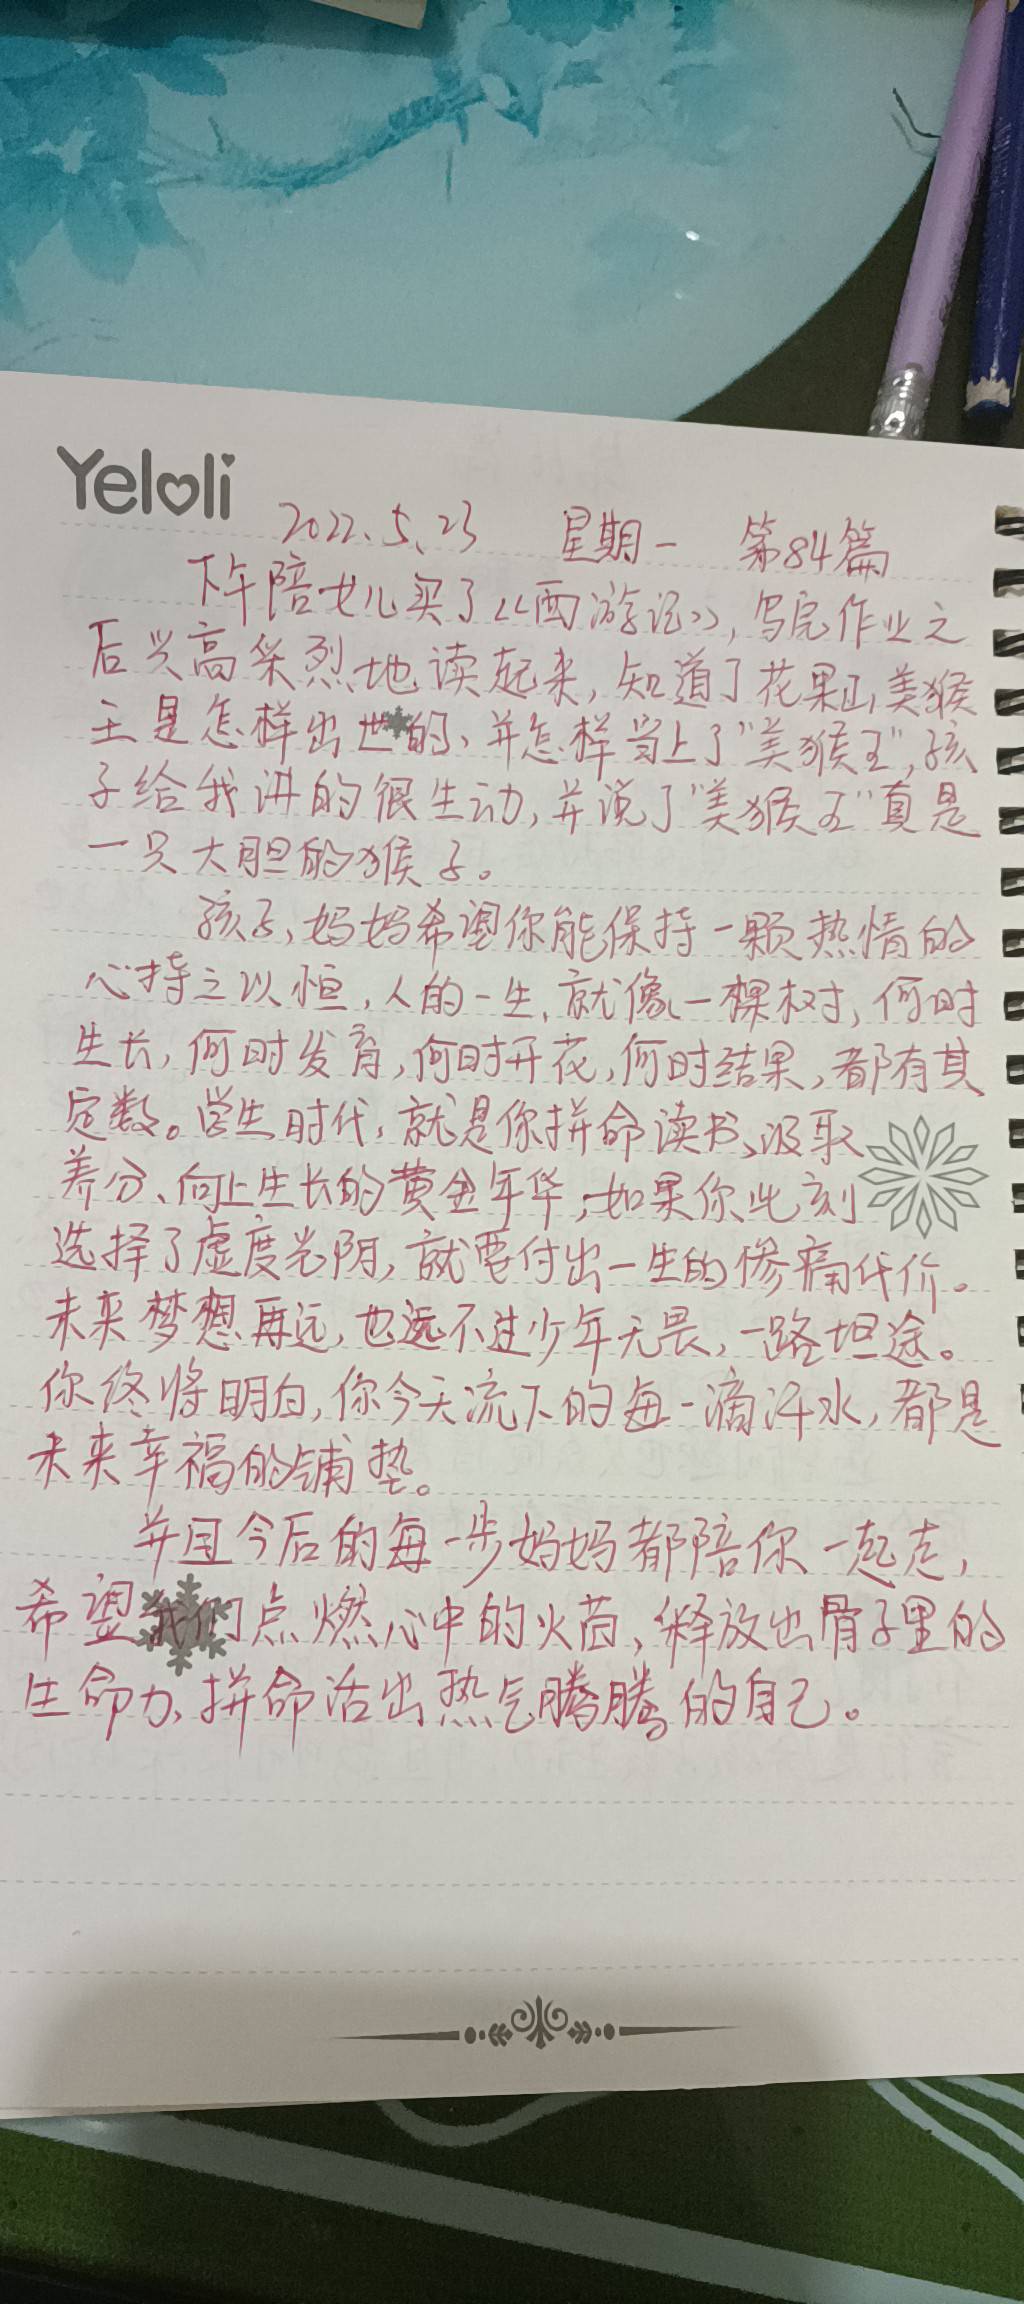 Yeloli
2022.5.23 星期一 第84篇
下午陪女儿买了《西游记》,写完作业之
后兴高采烈地读起来,知道了花果山美猴
王是怎样出世的、并怎样当上了"美猴王",孩
子给我讲的很生动,并说了"美猴王"真是
一只大胆的猴子。
孩子,妈妈希望你能保持一颗热情的
心持之以恒,人的一生、就像一棵树,何时
生长,何时发育,何时开花,何时结果,都有其
定数。学生时代,就是你拼命读书、汲取
养分、向上生长的黄金年华,如果你此刻
选择了虚度光阴,就要付出一生的惨痛代价。
未来梦想再远,也远不过少年无畏,一路坦途。
你终将明白,你今天流下的每一滴汗水,都是
未来幸福的铺垫。
并且今后的每一步妈妈都陪你一起走,
希望我们点燃心中的火苗,释放出骨子里的
生命力、拼命活出热气腾腾的自己。